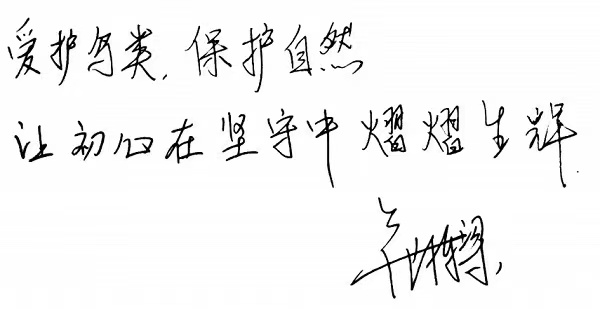 爱护鸟类,保护自然
让初心在坚守中熠熠生辉.